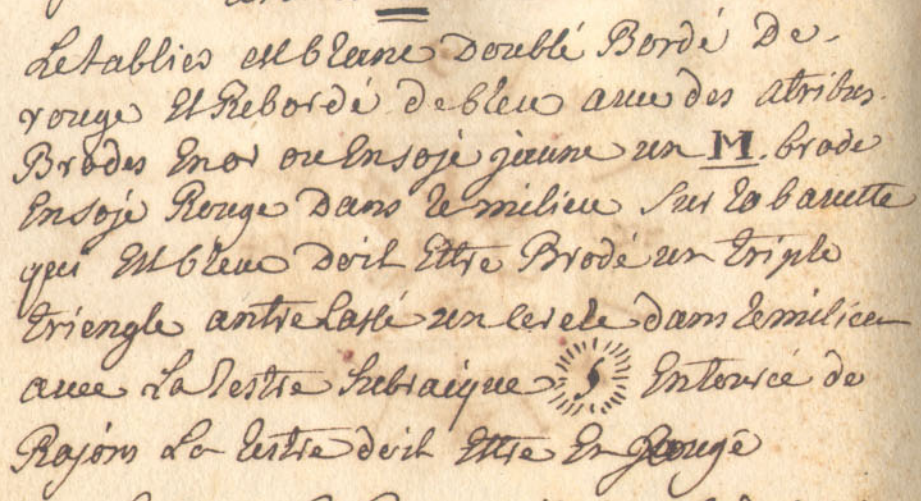 Letablier est blanc Doublé Bordé De
rouge Et Rebordé de bleu avec des atribus
Brodés En or ou En soje jaune un M. brode
En soje Rouge Dans le milieu Sur la bavette
qui Est bleue Doit Ettre Brodé un triple
triengle antrelassé un cercle dans le milieu
avec La lestre hebraique Entourée de
Rajons La lestre doit Ettre En Rouge